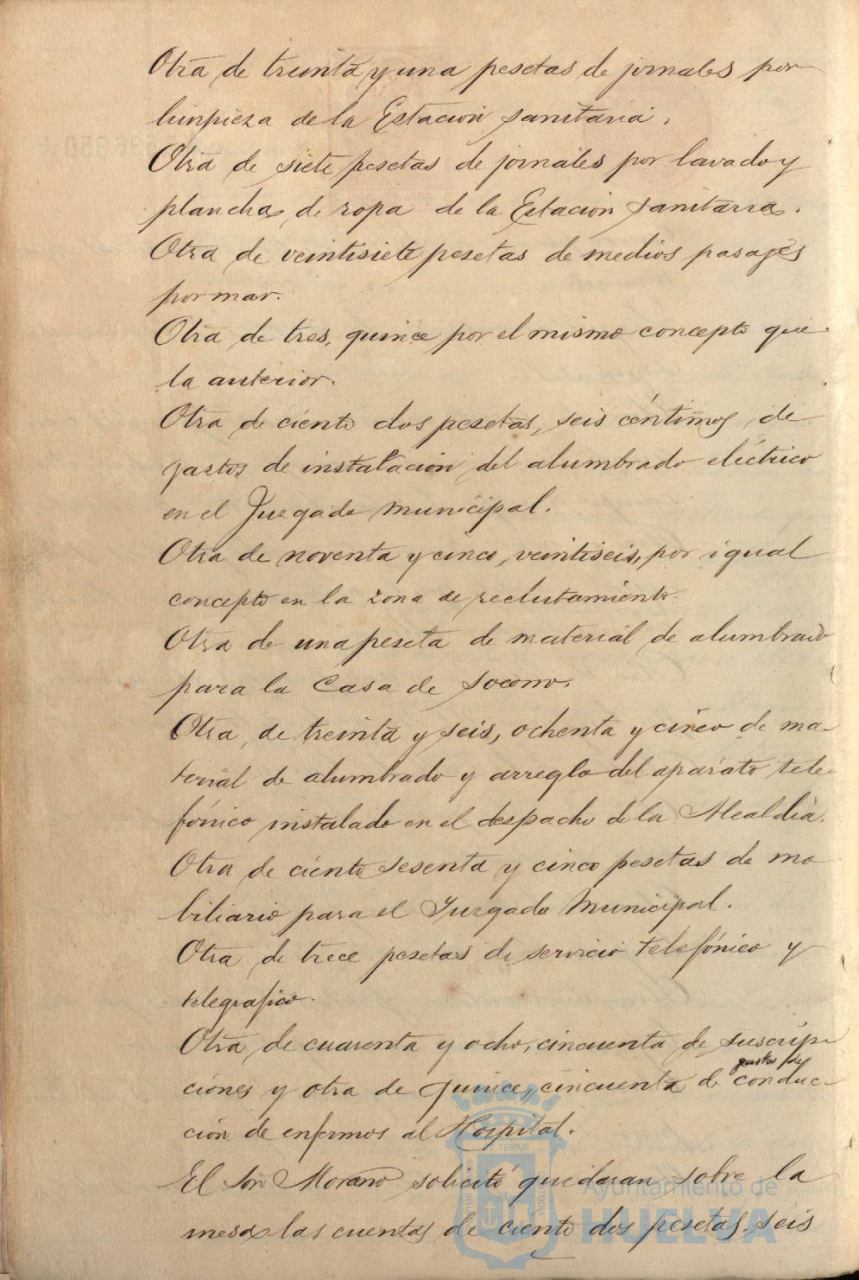 Otra de treinta y una pesetas de jornales por
limpieza de la Estacion sanitaria.
Otra de siete pesetas de jornales por lavado y
plancha de ropa de la Estacion sanitaria.
Otra de veintisiete pesetas de medios pasages
por mar.
Otra de tres, quince por el mismo concepto que
la anterior.
Otra de ciento dos pesetas, seis céntimos de
gastos de instalación del alumbrado eléctrico
en el Juzgado Municipal.
Otra de noventa y cinco, veintiseis, por igual
concepto en la zona de reclutamiento.
Otra de una peseta de material de alumbrado
para la Casa de Socorro.
Otra de treinta y seis, ochenta y cinco de ma-
terial de alumbrado y arreglo del aparato tele-
fónico instalado en el despacho de la Alcaldía.
Otra de ciento sesenta y cinco pesetas de mo
biliario para el Juzgado Municipal.
Otra de trece pesetas de servicio telefónico y
telegrafico.
Otra de cuarenta y ocho, cincuenta de suscrip-
ciones y otra de quince, cincuenta de gastos de conduc-
ción de enfermos al Hospital.
El Sor Moraño solicitó quedaran sobre la
mesa las cuentas de ciento dos pesetas, seis
Ayuntamiento de
HUELVA